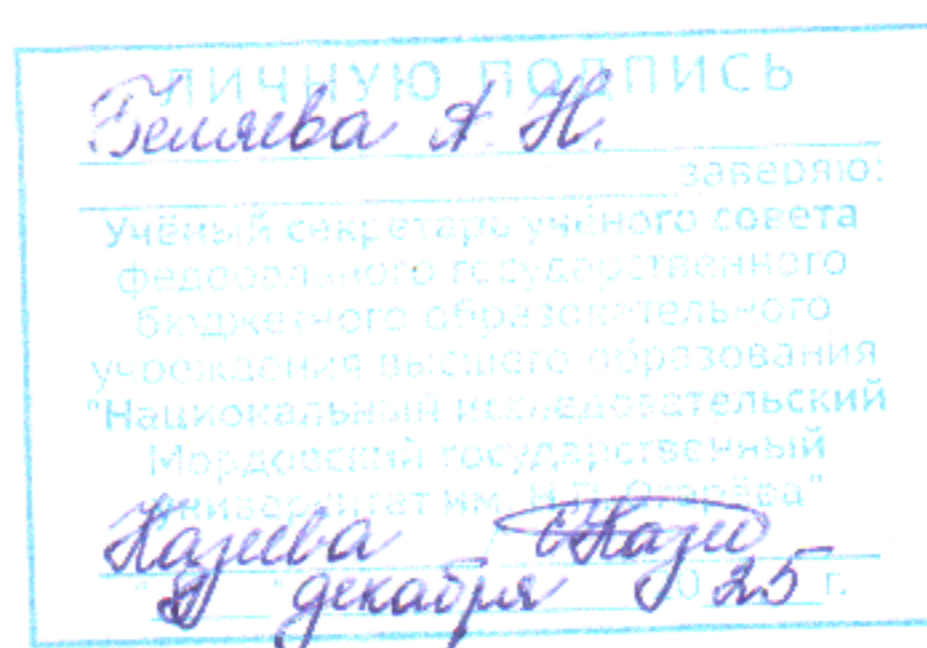 ЛИЧНУЮ ПОДПИСЬ
Беляева А. Н.
заверяю:
Учёный секретарь учёного совета
федерального государственного
бюджетного образовательного
учреждения высшего образования
"Национальный исследовательский
Мордовский государственный
университет им. Н.П. Огарёва"
декабря 2025 г.